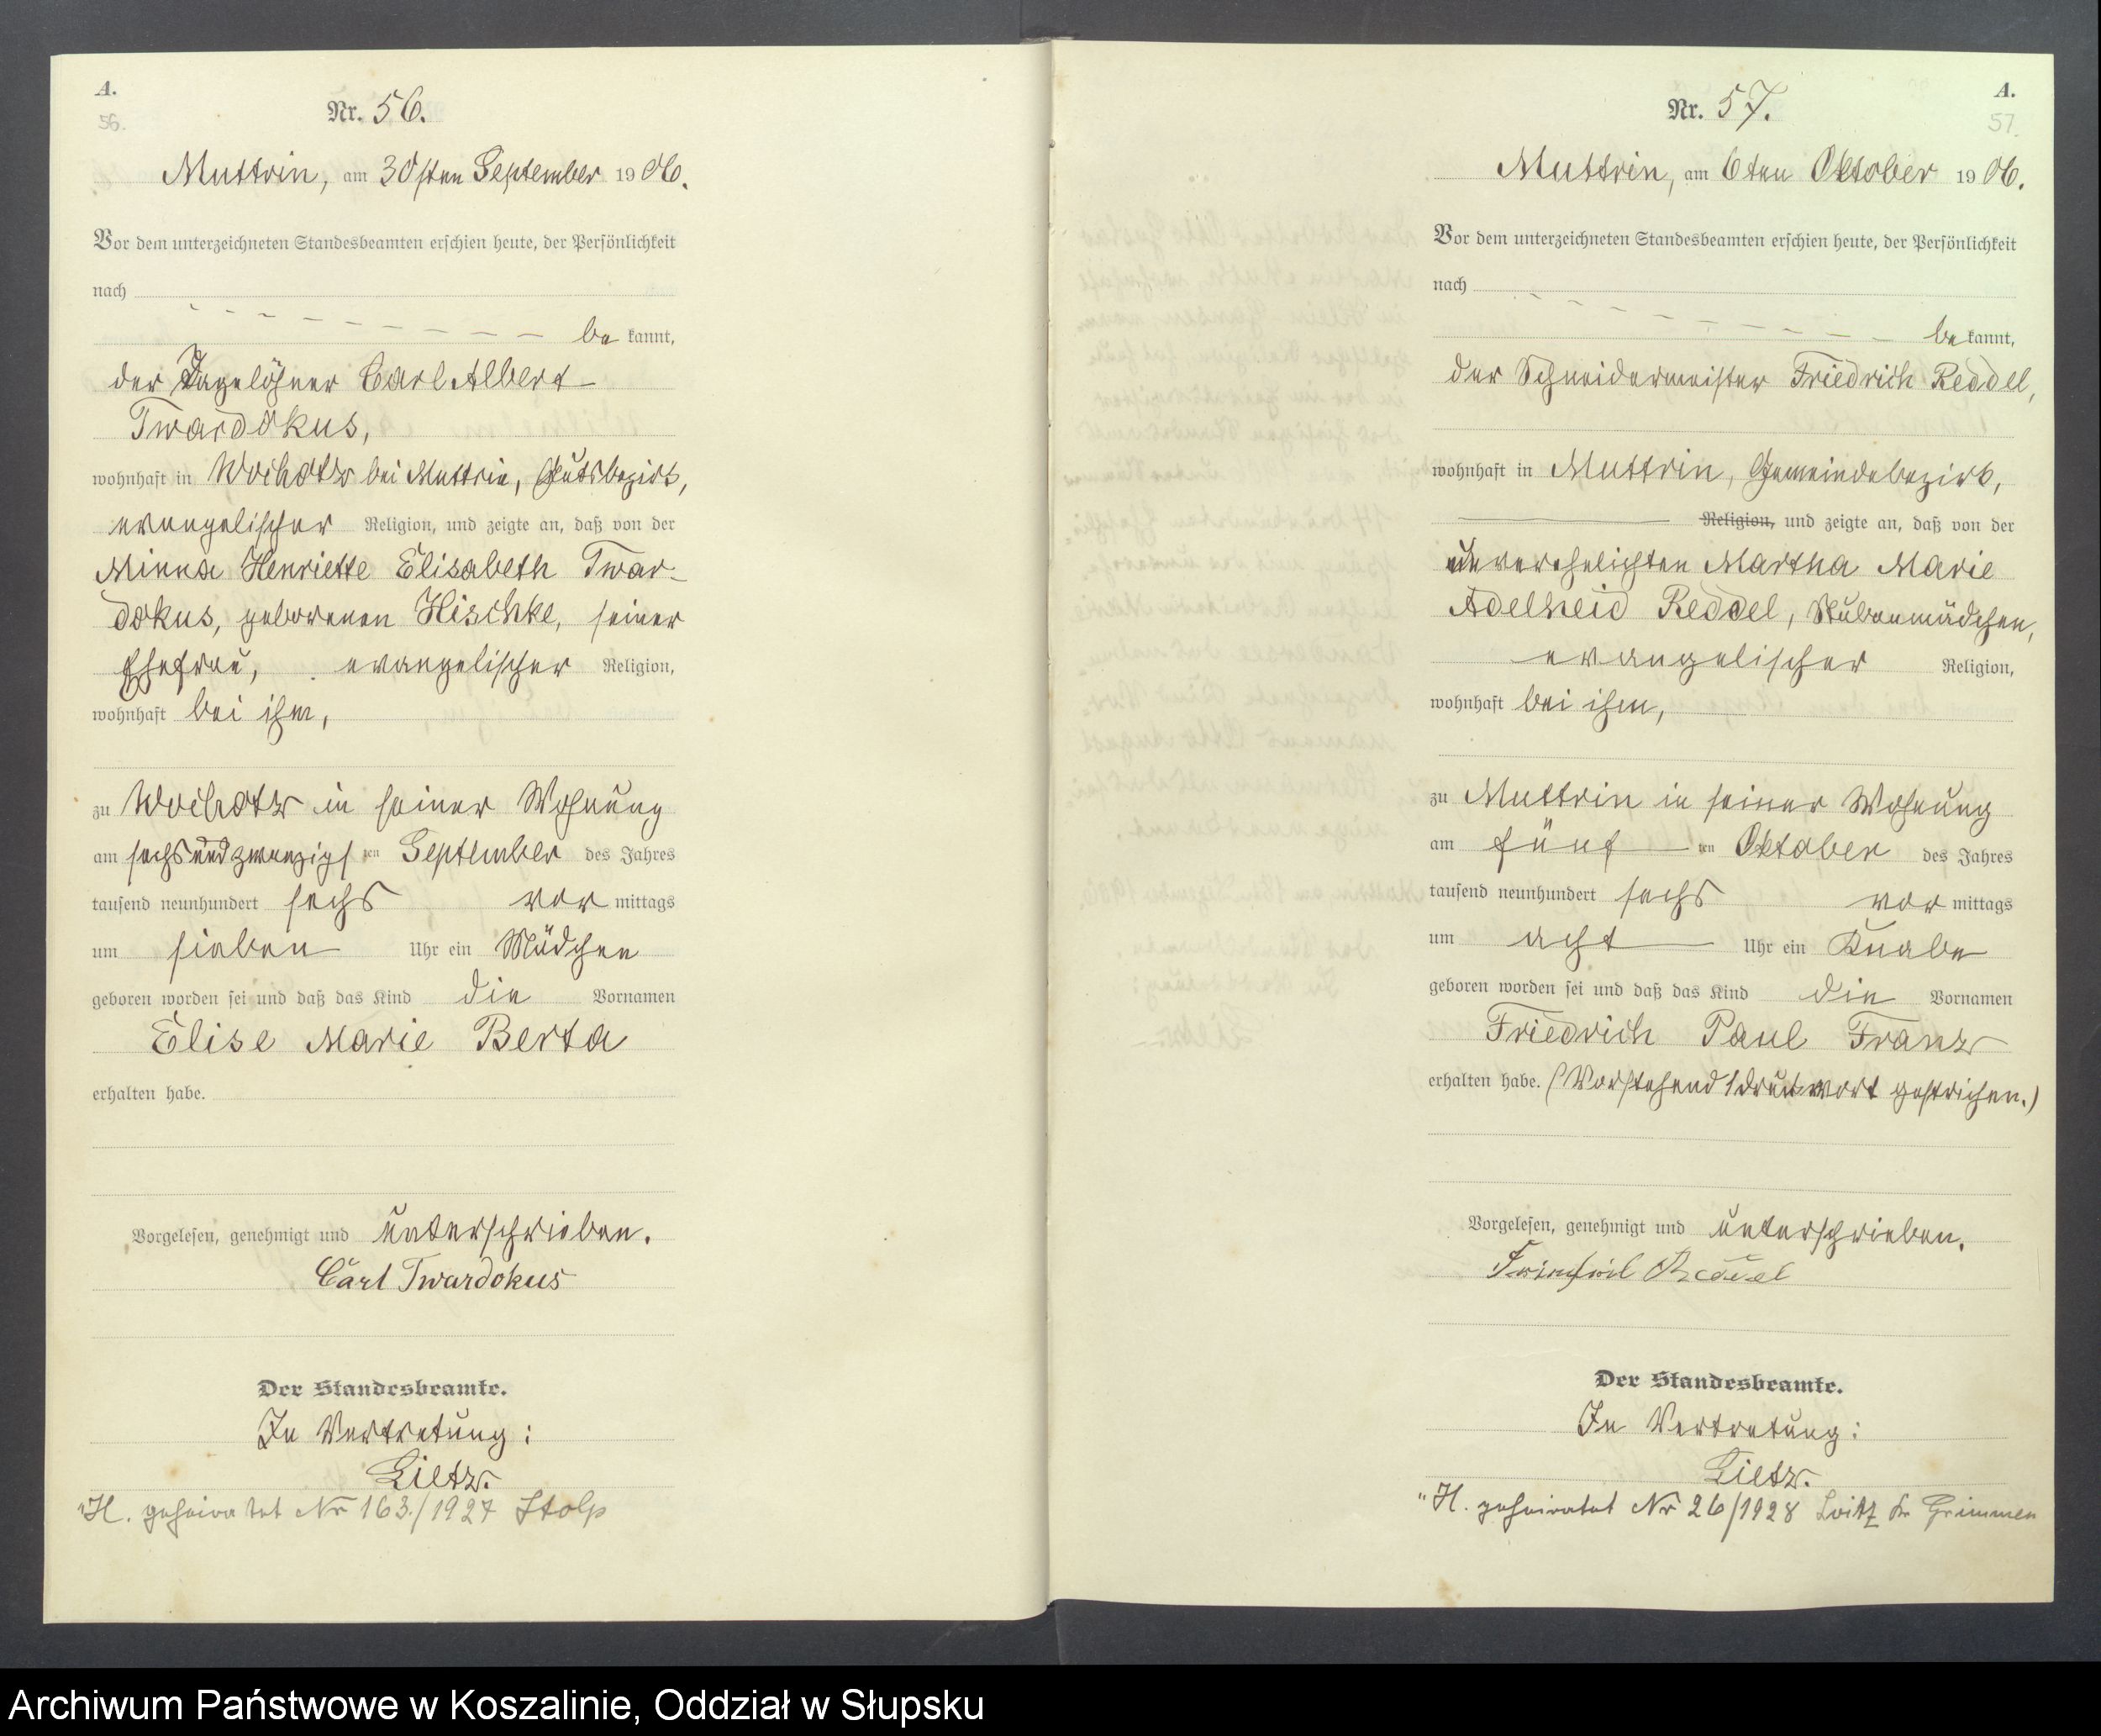 A.
56.
Nr. 56.
Muttrin, am 30sten September 1906.
Vor dem unterzeichneten Standesbeamten erschien heute, der Persönlichkeit
nach
be kannt,
der Tagelöhner Carl Albert
Twardokus,
wohnhaft in bei Muttrin, Gutsbezirk,
evangelischer Religion, und zeigte an, daß von der
Minna Henriette Elisabeth Twar-
dokus, geborenen Hischke, seiner
Ehefrau, evangelischer Religion,
wohnhaft bei ihm,
zu in seiner Wohnung
am sechsundzwanzigsten September des Jahres
tausend neunhundert sechs vor mittags
um sieben Uhr ein Mädchen
geboren worden sei und daß das Kind die Vornamen
Elise Marie Berta
erhalten habe.
Vorgelesen, genehmigt und unterschrieben.
Carl Twardokus
Der Standesbeamte.
In Vertretung:
Lietz.
"H. geheiratet Nr 163./1927 Stolp
A.
57.
Nr. 57.
Muttrin, am 6ten Oktober 1906.
Vor dem unterzeichneten Standesbeamten erschien heute, der Persönlichkeit
nach
be kannt,
der Schneidermeister Friedrich Reddel,
wohnhaft in Muttrin, Gemeindebezirk,
Religion, und zeigte an, daß von der
unverehelichten Martha Marie
Adelheid Reddel, Stubenmädchen,
evangelischer Religion,
wohnhaft bei ihm,
zu Muttrin in seiner Wohnung
am fünf ten Oktober des Jahres
tausend neunhundert sechs vor mittags
um acht Uhr ein Knabe
geboren worden sei und daß das Kind die Vornamen
Friedrich Paul Franz
erhalten habe. (Vorstehend 1 Druckwort gestrichen.)
Vorgelesen, genehmigt und unterschrieben.
Reddel
Der Standesbeamte.
In Vertretung:
Lietz.
"H. geheiratet Nr 26/1928 Loitz Kr Grimmen
Archiwum Państwowe w Koszalinie, Oddział w Słupsku